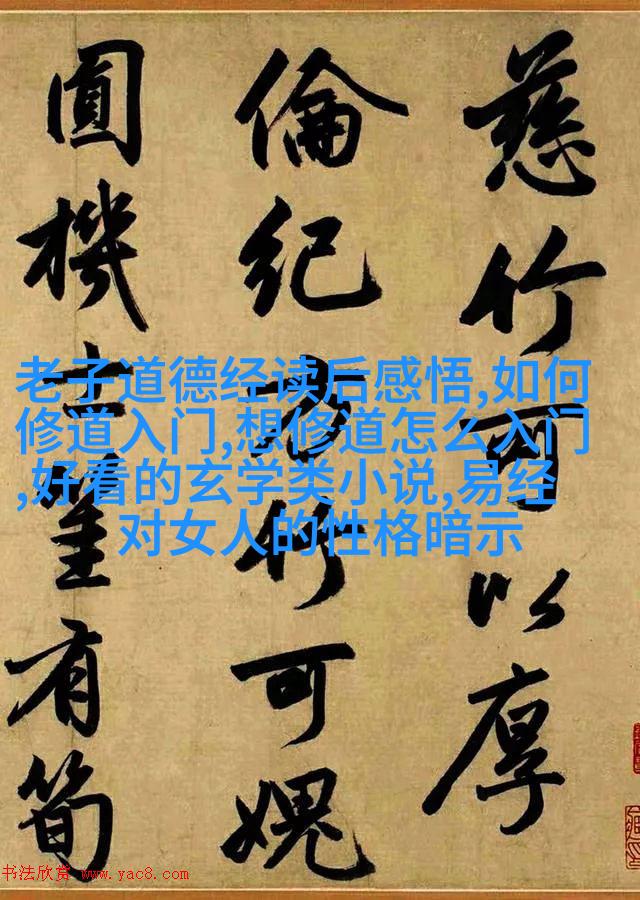 慈竹可以厚
倫紀方竹可媿
圓機士筀有筍
老子道德经读后感悟,如何
修道入门,想修道怎么入门
,好看的玄学类小说,易经
对女人的性格暗示
书法欣赏 www.yac8.com